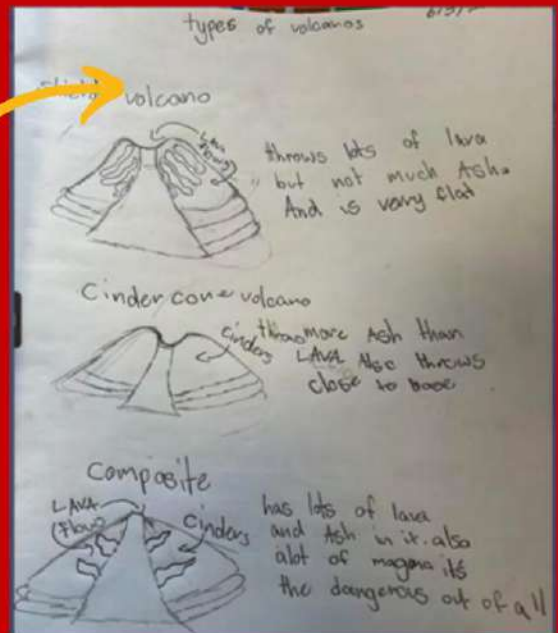 types of volcanos
volcano
LAVA
flows
throws lots of lava
but not much Ash.
And is very flat
Cinder cone volcano
cinders
throws more Ash than
LAVA Also throws
close to base
composite
LAVA
(flow)
cinders
has lots of lava
and Ash in it. also
alot of magma its
the dangerous out of all